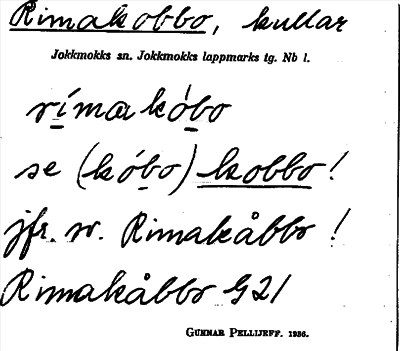 Rimakobbo, kullar
Jokkmokks sn. Jokkmokks lappmarks tg. Nb l.
rímakóbo
se (kóbo) kobbo!
jfr. sv. Rimakåbbo!
Rimakåbbo G21
GUNNAR PELLIJEFF. 1936.